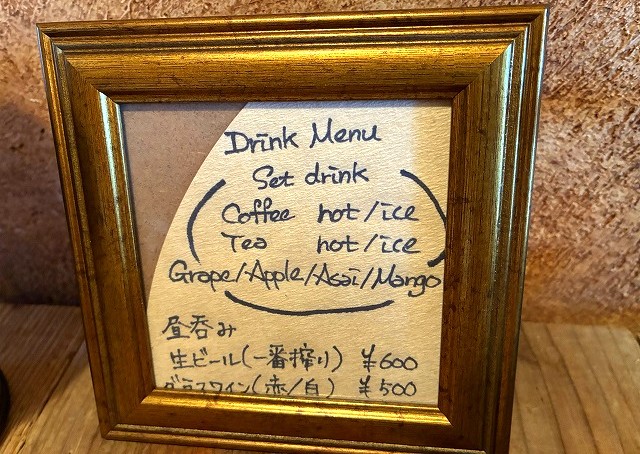 Drink Menu
Set drink
Coffee hot/ice
Tea hot/ice
Grape/Apple/Asai/Mango
昼呑み
生ビール(一番搾り) ¥600
グラスワイン(赤/白) ¥500